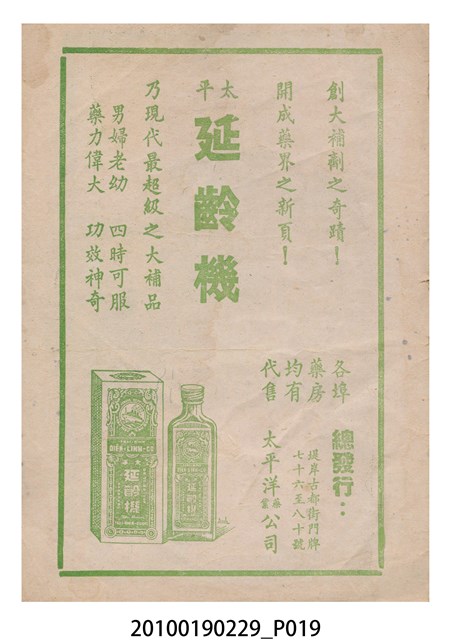 創大補劑之奇蹟！
開成藥界之新頁！
太平
延齡機
乃現代最超級之大補品
男婦老幼　四時可服
藥力偉大　功效神奇
各埠
藥房
均有
代售
總發行：
堤岸古都街門牌
七十六至八十號
太平洋藥業公司
DIÊN-LINH-CO
延齡機
延齡機
20100190229_P019